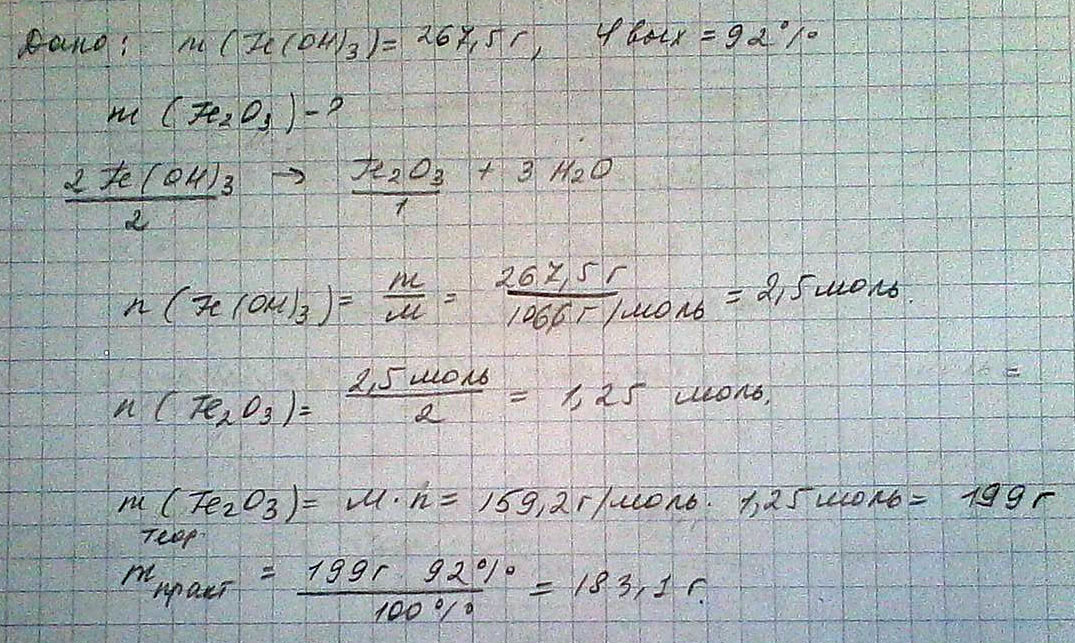 Дано: m (Fe(OH)3) = 267,5 г, φ вых = 92%
m (Fe2O3) - ?
2 Fe(OH)3 → Fe2O3 + 3 H2O
2 1
n (Fe(OH)3) = m/M = 267,5 г / 106,6 г/моль = 2,5 моль.
n (Fe2O3) = 2,5 моль / 2 = 1,25 моль.
=
m теор. (Fe2O3) = M · n = 159,2 г/моль · 1,25 моль = 199 г
m практ = 199 г · 92% / 100% = 183,1 г.